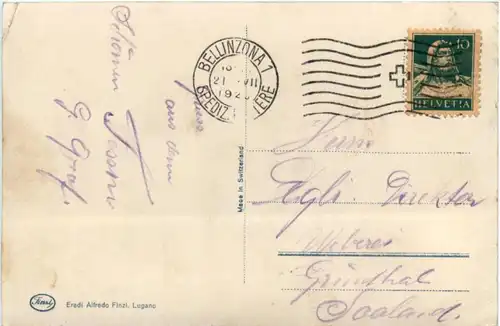 Schönen
Gruss
aus dem
Tessin
G. Graf.
BELLINZONA 1
21. VII
192
SPEDIZ. LETTERE
10
HELVETIA
Made in Switzerland
Herrn
Hgli. Direktor
Weberei
Grünthal
Saaland.
Finzi
Eredi Alfredo Finzi, Lugano